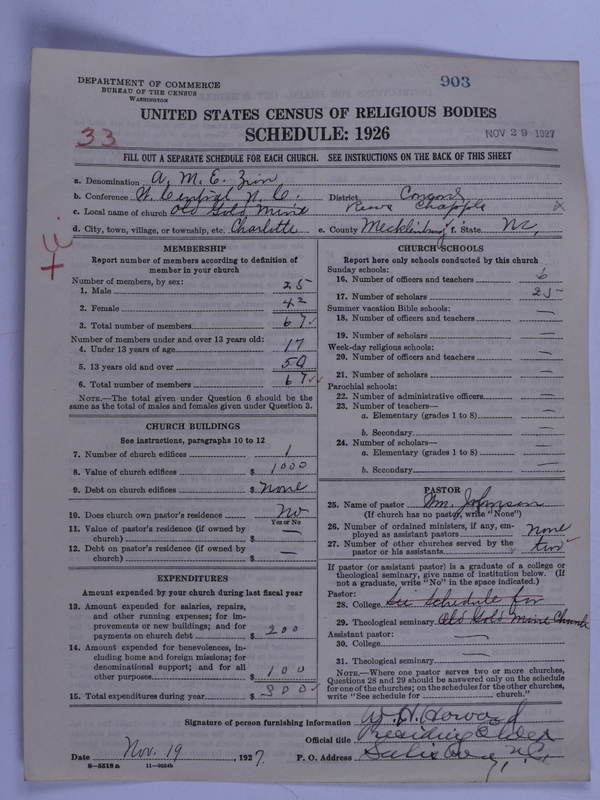 DEPARTMENT OF COMMERCE
BUREAU OF THE CENSUS
WASHINGTON
903
UNITED STATES CENSUS OF RELIGIOUS BODIES
SCHEDULE: 1926
33
NOV 29 1927
FILL OUT A SEPARATE SCHEDULE FOR EACH CHURCH. SEE INSTRUCTIONS ON THE BACK OF THIS SHEET
a. Denomination A. M. E. Zion
b. Conference W. Central N. C. District Concord
c. Local name of church Old Gold Mine Chapple
d. City, town, village, or township, etc. Charlotte e. County Mecklinburg f. State NC,
MEMBERSHIP
Report number of members according to definition of
member in your church
Number of members, by sex:
1. Male 25
2. Female 42
3. Total number of members 67
Number of members under and over 13 years old:
4. Under 13 years of age 17
5. 13 years old and over 50
6. Total number of members 67
NOTE.—The total given under Question 6 should be
the same as the total of males and females given under Question 3.
CHURCH BUILDINGS
See instructions, paragraphs 10 to 12
7. Number of church edifices 1
8. Value of church edifices $ 1000
9. Debt on church edifices $ None
10. Does church own pastor's residence No
Yes or No
11. Value of pastor's residence (if owned by
church) $ —
12. Debt on pastor's residence (if owned by
church) $ —
EXPENDITURES
Amount expended by your church during last fiscal year
13. Amount expended for salaries, repairs,
and other running expenses; for im-
provements or new buildings; and for
payments on church debt $ 200
14. Amount expended for benevolences, in-
cluding home and foreign missions; for
denominational support; and for all
other purposes $ 100
15. Total expenditures during year $ 300
CHURCH SCHOOLS
Report here only schools conducted by this church
Sunday schools:
16. Number of officers and teachers 6
17. Number of scholars 25
Summer vacation Bible schools:
18. Number of officers and teachers —
19. Number of scholars —
Week-day religious schools:
20. Number of officers and teachers —
21. Number of scholars —
Parochial schools:
22. Number of administrative officers —
23. Number of teachers—
a. Elementary (grades 1 to 8) —
b. Secondary —
24. Number of scholars—
a. Elementary (grades 1 to 8) —
b. Secondary —
PASTOR
25. Name of pastor Wm. Johnson
(If church has no pastor, write "None")
26. Number of ordained ministers, if any, em-
ployed as assistant pastors none
27. Number of other churches served by the
pastor or his assistants two
If pastor (or assistant pastor) is a graduate of a college or
theological seminary, give name of institution below. (If
not a graduate, write "No" in the space indicated.)
Pastor:
28. College See schedule for
29. Theological seminary Old Gold Mine Church
Assistant pastor:
30. College —
31. Theological seminary —
NOTE.—Where one pastor serves two or more churches,
Questions 28 and 29 should be answered only on the schedule
for one of the churches; on the schedules for the other churches,
write "See schedule for church."
Signature of person furnishing information W. H. Howard
Official title Presiding Elder
Date Nov. 19, 1927. P. O. Address Salisbury, N.C.
8—5518 a 11—9894b